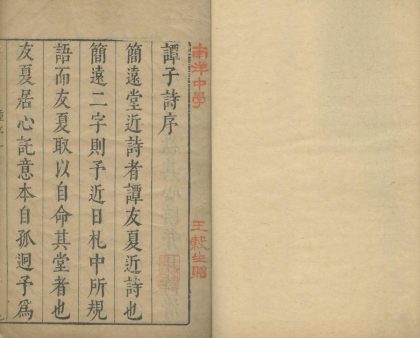 南洋中學
王穀生贈
譚子詩序
簡遠堂近詩者譚友夏近詩也
簡遠二字則予近日札中所規
語而友夏取以自命其堂者也
友夏居心託意本自孤迥予爲